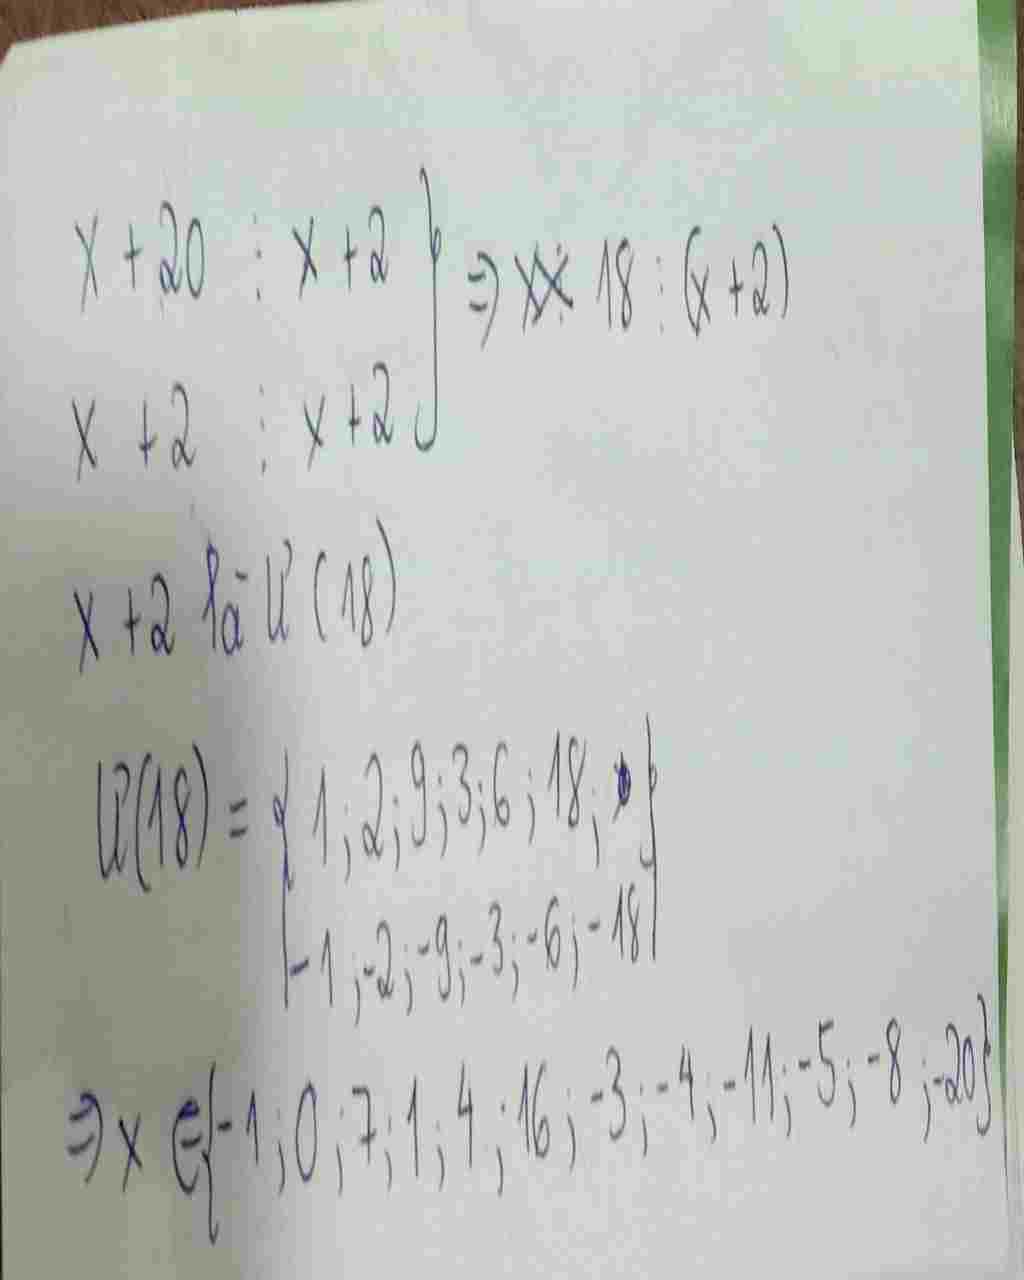 x + 20 ⋮ x + 2 } ⇒ 18 ⋮ (x + 2)
x + 2 ⋮ x + 2
x + 2 là Ư (18)
Ư(18) = { 1 ; 2 ; 9 ; 3 ; 6 ; 18 ; }
-1 ; -2 ; -9 ; -3 ; -6 ; -18
⇒ x ∈ { -1 ; 0 ; 7 ; 1 ; 4 ; 16 ; -3 ; -4 ; -11 ; -5 ; -8 ; -20 }